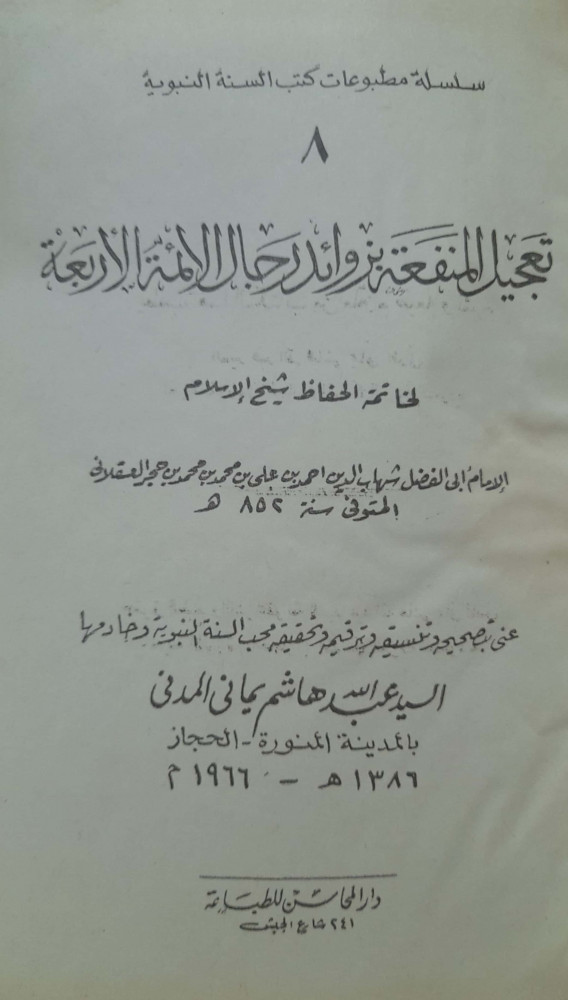 سلسلة مطبوعات كتب السنة النبوية
٨
تعجيل المنفعة بزوائد رجال الأئمة الأربعة
لخاتمة الحفاظ شيخ الإسلام
الإمام أبى الفضل شهاب الدين احمد بن على بن محمد بن محمد بن حجر العسقلانى
المتوفى سنة ٨٥٢ هـ
عنى بتصحيحه وتنسيقه وترقيمه وتحقيقه محب السنة النبوية وخادمها
السيد عبد الله هاشم يمانى المدنى
بالمدينة المنورة - الحجاز
١٣٨٦ هـ - ١٩٦٦ م
دار المحاسن للطباعة
٢٤١ شارع الجيش